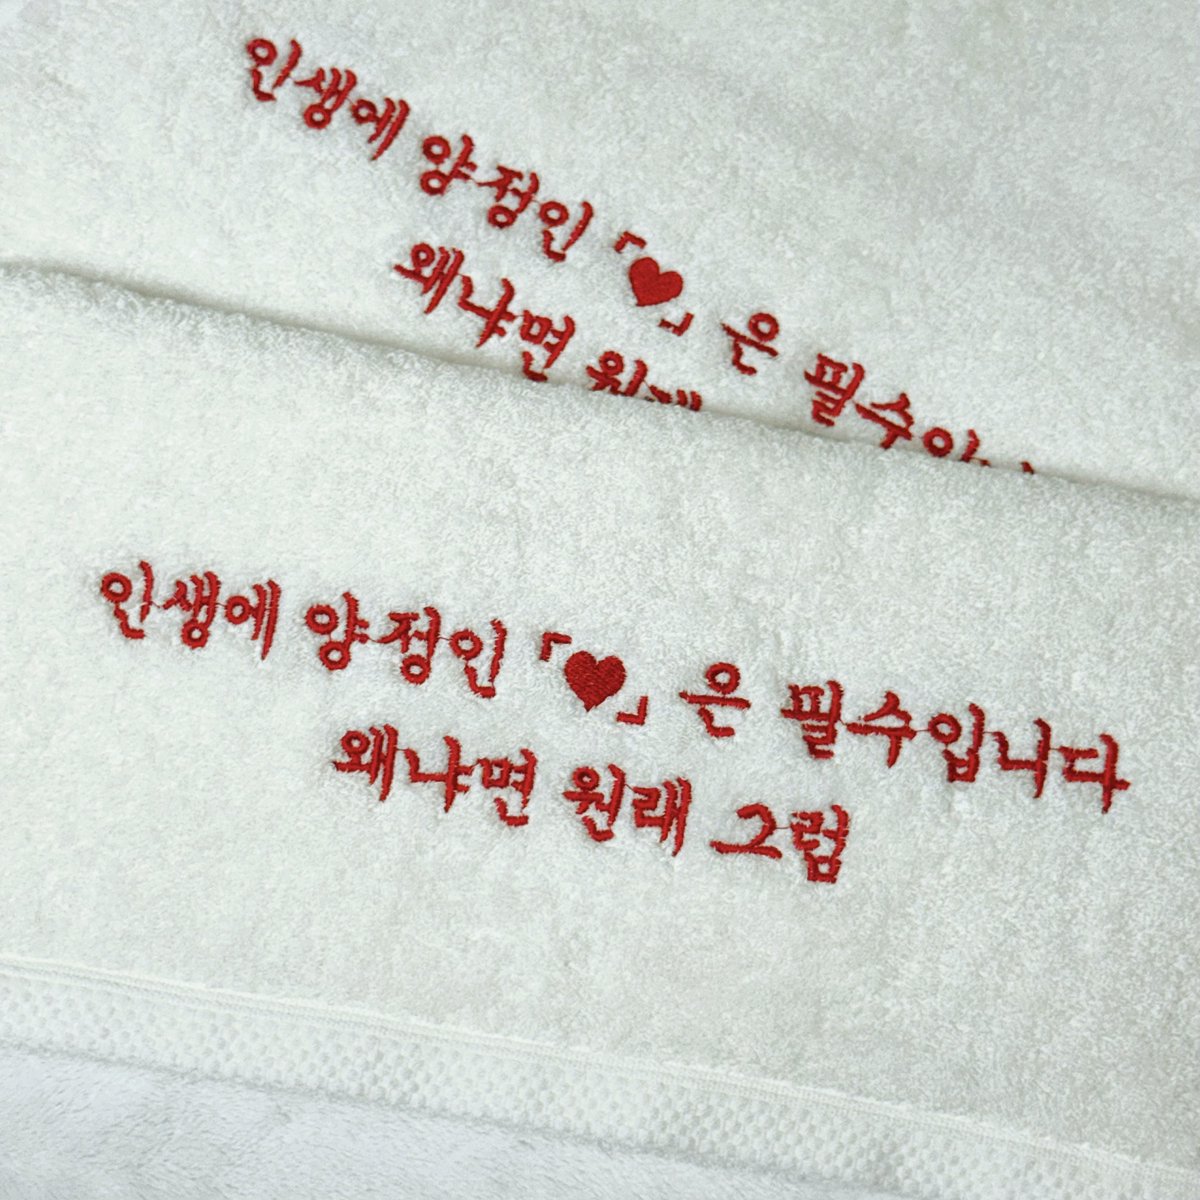 인생에 양정인 「♥」 은 필수
왜냐면 원래
인생에 양정인 「♥」 은 필수입니다
왜냐면 원래 그럼